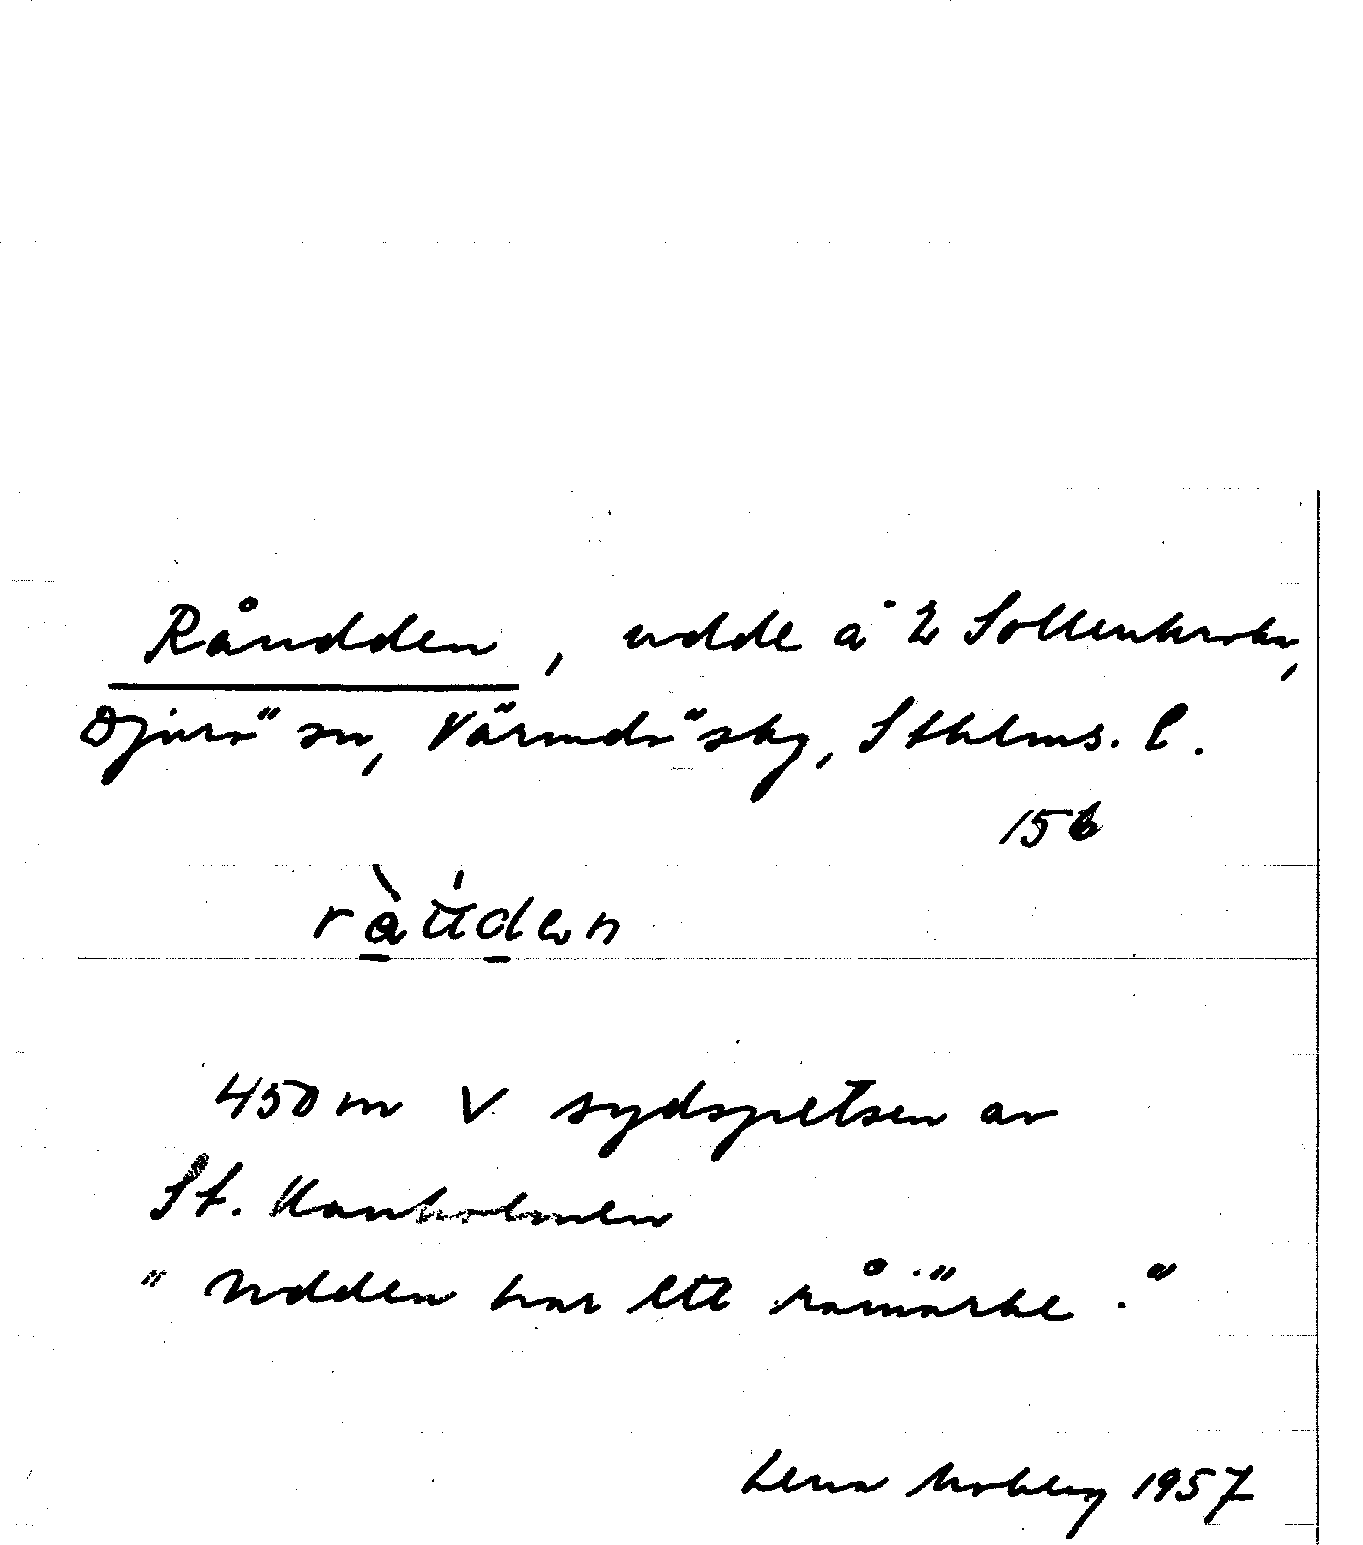 Råudden, udde å 2 Sollenkroka,
Djurö sn, Värmdö skg, Sthlms. l.
156
450 m V sydspetsen av
St. Kanholmen
"Udden har ett råmärke."
Lena Moberg 1957